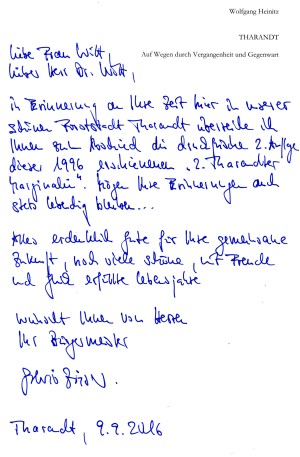 Wolfgang Heinitz
THARANDT
Auf Wegen durch Vergangenheit und Gegenwart
Liebe Frau Witt,
lieber Herr Dr. Witt,
in Erinnerung an Ihre Zeit hier in unserer
schönen Forststadt Tharandt überreiche ich
Ihnen zum Abschied die druckfrische 2. Auflage
dieser 1996 erschienenen „2. Tharandter
Marginalie". Mögen Ihre Erinnerungen auch
stets lebendig bleiben...
Alles erdenklich Gute für Ihre gemeinsame
Zukunft, noch viele schöne, mit Freude
und Glück erfüllte Lebensjahre
wünscht Ihnen von Herzen
Ihr Bürgermeister
Tharandt, 9.9.2016